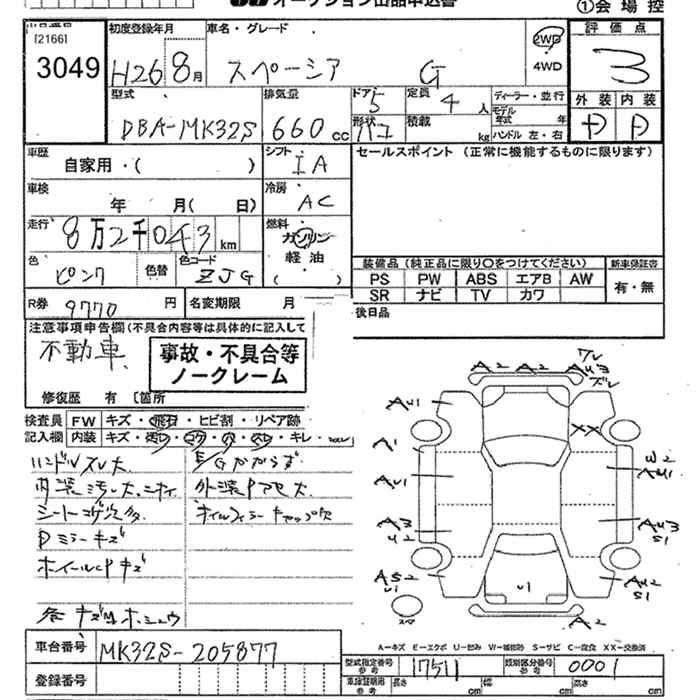 オークション出品申込書
①会場控
出品番号 初度登録年月 車名・グレード 2WD 評価点
[2166]
3049 H26 8月 スペーシア G 4WD 3
型式 排気量 ドア 定員 ディーラー・並行 外装 内装
5 4人 モデル年式 年
DBA-MK32S 660cc 形状 積載 kg ハンドル 左・右 D D
ハコ
車歴 シフト セールスポイント (正常に機能するものに限ります)
自家用・( ) IA
車検 冷房
年 月( 日) AC
走行 燃料
8万2千043km ガソリン
軽油
色 色替 色コード ( )
ピンク ZJG
装備品 (純正品に限り〇をつけてください) 新車保証書
PS PW ABS エアB AW 有・無
SR ナビ TV カワ
R券 9770円 名変期限 月
後日品
注意事項申告欄(不具合内容等は具体的に記入して
不動車 事故・不具合等
ノークレーム
修復歴 有 〔箇所
検査員 FW キズ・飛石・ヒビ割・リペア跡
記入欄 内装 キズ・汚レ・コゲ・穴・スレ・キレ・
ハンドルスレ大 E/Gかからず
内装汚レ大、ニオイ 外装Pアセ大
シートコゲ穴多 オイルフィラーキャップ欠
Dミラーキズ
ホイールCPキズ
各キズ凹ホシュウ
A2 A2 AU3
ワレ
ズレ
AU1
XX
A1
W2
AU1
AU1
A3
U2
AU3
S1
AS2
U1
U1
AU2
S1
スペ
A2
A-キズ E-エクボ U-凹み W-補修跡 S-サビ C-腐食 XX-交換済
車台番号 MK32S-205877
型式指定番号 17511 類別区分番号 0001
参考 参考
登録番号
車庫証明用 長さ cm 幅 cm 高さ cm
参考